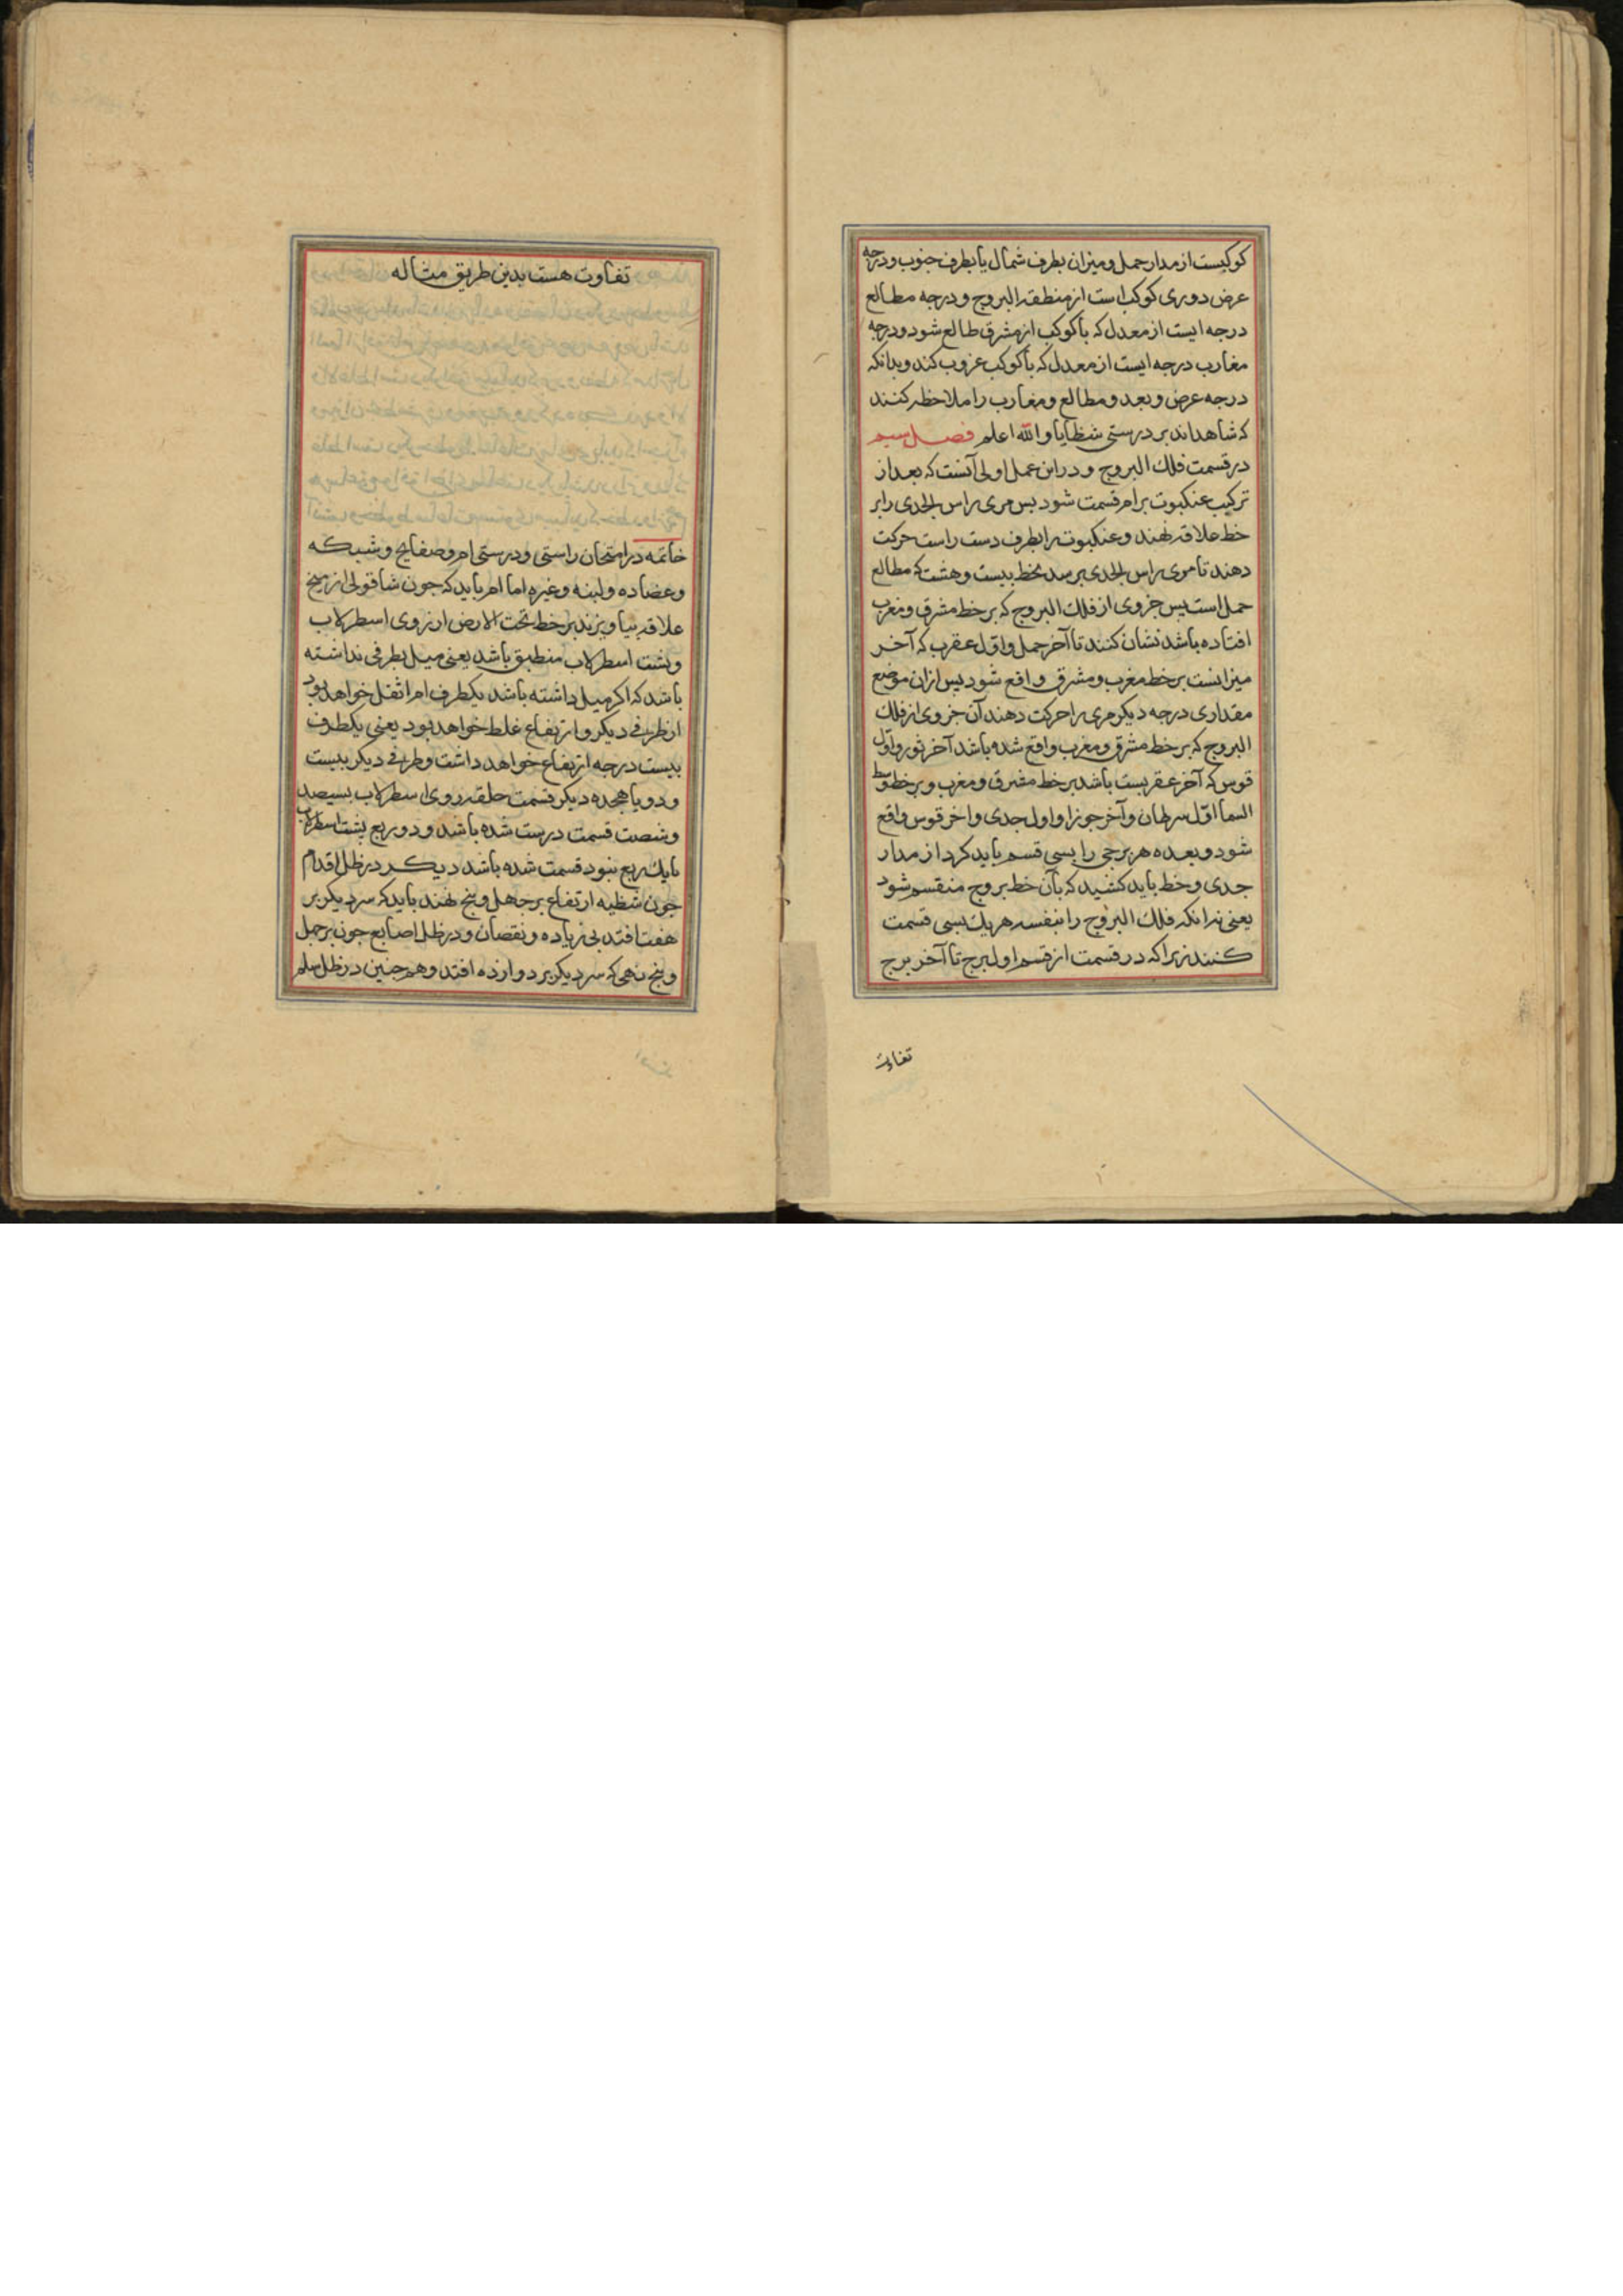 کوکبست از مدار حمل و میزان بطرف شمال یا بطرف جنوب و درجه
عرض دوری کوکب است از منطقة البروج و درجه مطالع
درجه ایست از معدل که با کوکب از مشرق طالع شود و درجه
مغارب درجه ایست از معدل که با کوکب غروب کند و بدانکه
درجه عرض و بعد و مطالع و مغارب را ملاحظه کنند
که شاهداند بر درستی شظایا والله اعلم فصل سیم
در قسمت فلک البروج و در این عمل اولی آنست که بعد از
ترکیب عنکبوت بر ام قسمت شود بس مری راس الجدی را بر
خط علاقه نهند و عنکبوت را بطرف دست راست حرکت
دهند تا موی راس الجدی برسد بخط بیست و هشت که مطالع
حمل است بس جزوی از فلک البروج که بر خط مشرق و مغرب
افتاده باشد نشان کنند تا آخر حمل و اول عقرب که آخر
میزانست بر خط مغرب و مشرق واقع شود بس ازان موضع
مقداری درجه دیکر مری را حرکت دهند آن جزوی از فلک
البروج که بر خط مشرق و مغرب واقع شده باشد آخر ثور و اول
قوس که آخر عقربست باشد بر خط مشرق و مغرب و بر خط وسط
السما اول سرطان و آخر جوزا و اول جدی و اخر قوس واقع
شود و بعده هر برجی را بسی قسم باید کرد از مدار
جدی و خط باید کشید که بآن خط بروج منقسم شود
یعنی نه انکه فلک البروج را بنفسه هر یک بسی قسمت
کنند زیرا که در قسمت از قسم اول برج تا آخر برج
تفاوت
تفاوت هست بدین طریق مثاله
خاتمه در امتحان راستی و درستی ام و صفایح و شبکه
و عضاده و لبنه و غیره اما ام باید که جون شاقولی از میخ
علاقه بیاویزند بر خط تحت الارض از روی اسطرلاب
و بشت اسطرلاب منطبق باشد یعنی میل بطرفی نداشته
باشد که اکر میل داشته باشد یکطرف ام اثقل خواهد بود
از طرفی دیکر و ارتفاع غلط خواهد بود یعنی یکطرف
بیست درجه ارتفاع خواهد داشت و طرفی دیکر بیست
و دو یا هجده دیکر قسمت حلقه روی اسطرلاب بسیصد
و شصت قسمت درست شده باشد و دو ربع بشت اسطرلاب
یا یک ربع بنود قسمت شده باشد دیکر در ظل اقدام
جون شظیه ارتفاع بر جهل و بنج نهند باید که سر دیکر بر
هفت افتد بی زیاده و نقصان و در ظل اصابع جون بر جهل
و بنج نهی که سر دیکر بر دوازده افتد و هم جنین در ظل سلم